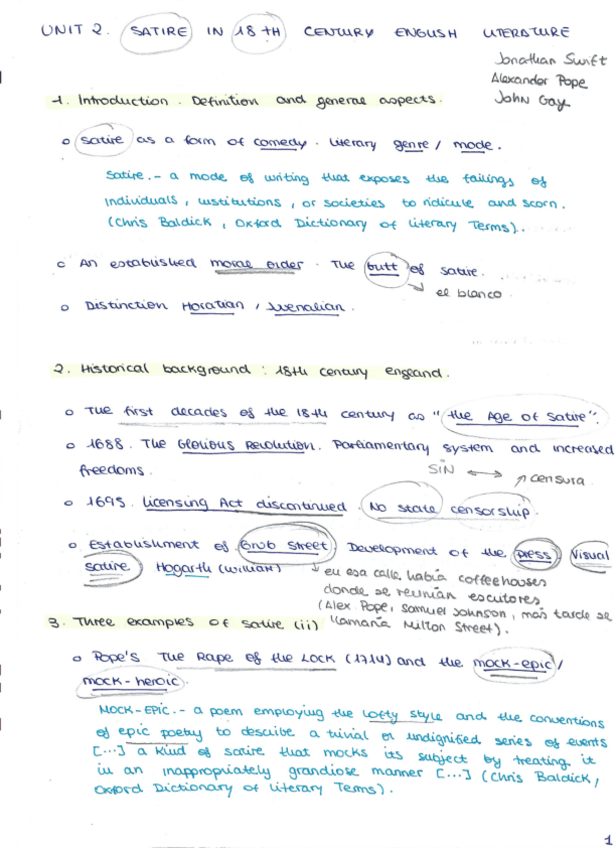 UNIT 2. SATIRE IN 18TH CENTURY ENGLISH LITERATURE
Jonathan Swift
Alexander Pope
John Gay
1. Introduction. Definition and general aspects.
o satire as a form of comedy. Literary genre / mode.
Satire.- a mode of writing that exposes the failings of
individuals, institutions, or societies to ridicule and scorn.
(Chris Baldick, Oxford Dictionary of Literary Terms).
o An established moral order. The butt of satire.
↳ el blanco
o Distinction Horatian / Juvenalian.
2. Historical background: 18th century england.
o The first decades of the 18th century as "the Age of Satire".
o 1688. The Glorious Revolution. Parliamentary system and increased
freedoms.
SIN ↔ ↗ censura
o 1695. Licensing Act discontinued. No state censorship.
o Establishment of Grub Street. Development of the press. Visual
satire. Hogarth (William)
↳ en esa calle había coffeehouses
donde se reunían escritores
(Alex. Pope, Samuel Johnson, más tarde se
llamaría Milton Street).
3. Three examples of satire (ii)
o Pope's The Rape of the Lock (1714) and the mock-epic /
mock-heroic.
MOCK-EPIC.- a poem employing the lofty style and the conventions
of epic poetry to describe a trivial or undignified series of events
[...] a kind of satire that mocks its subject by treating it
in an inappropriately grandiose manner [...] (Chris Baldick,
Oxford Dictionary of Literary Terms).
1